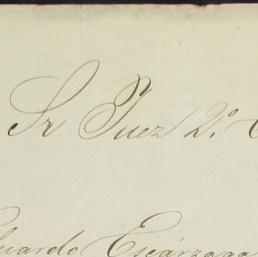 Sr Juez 2º
Eduardo Escárzaga